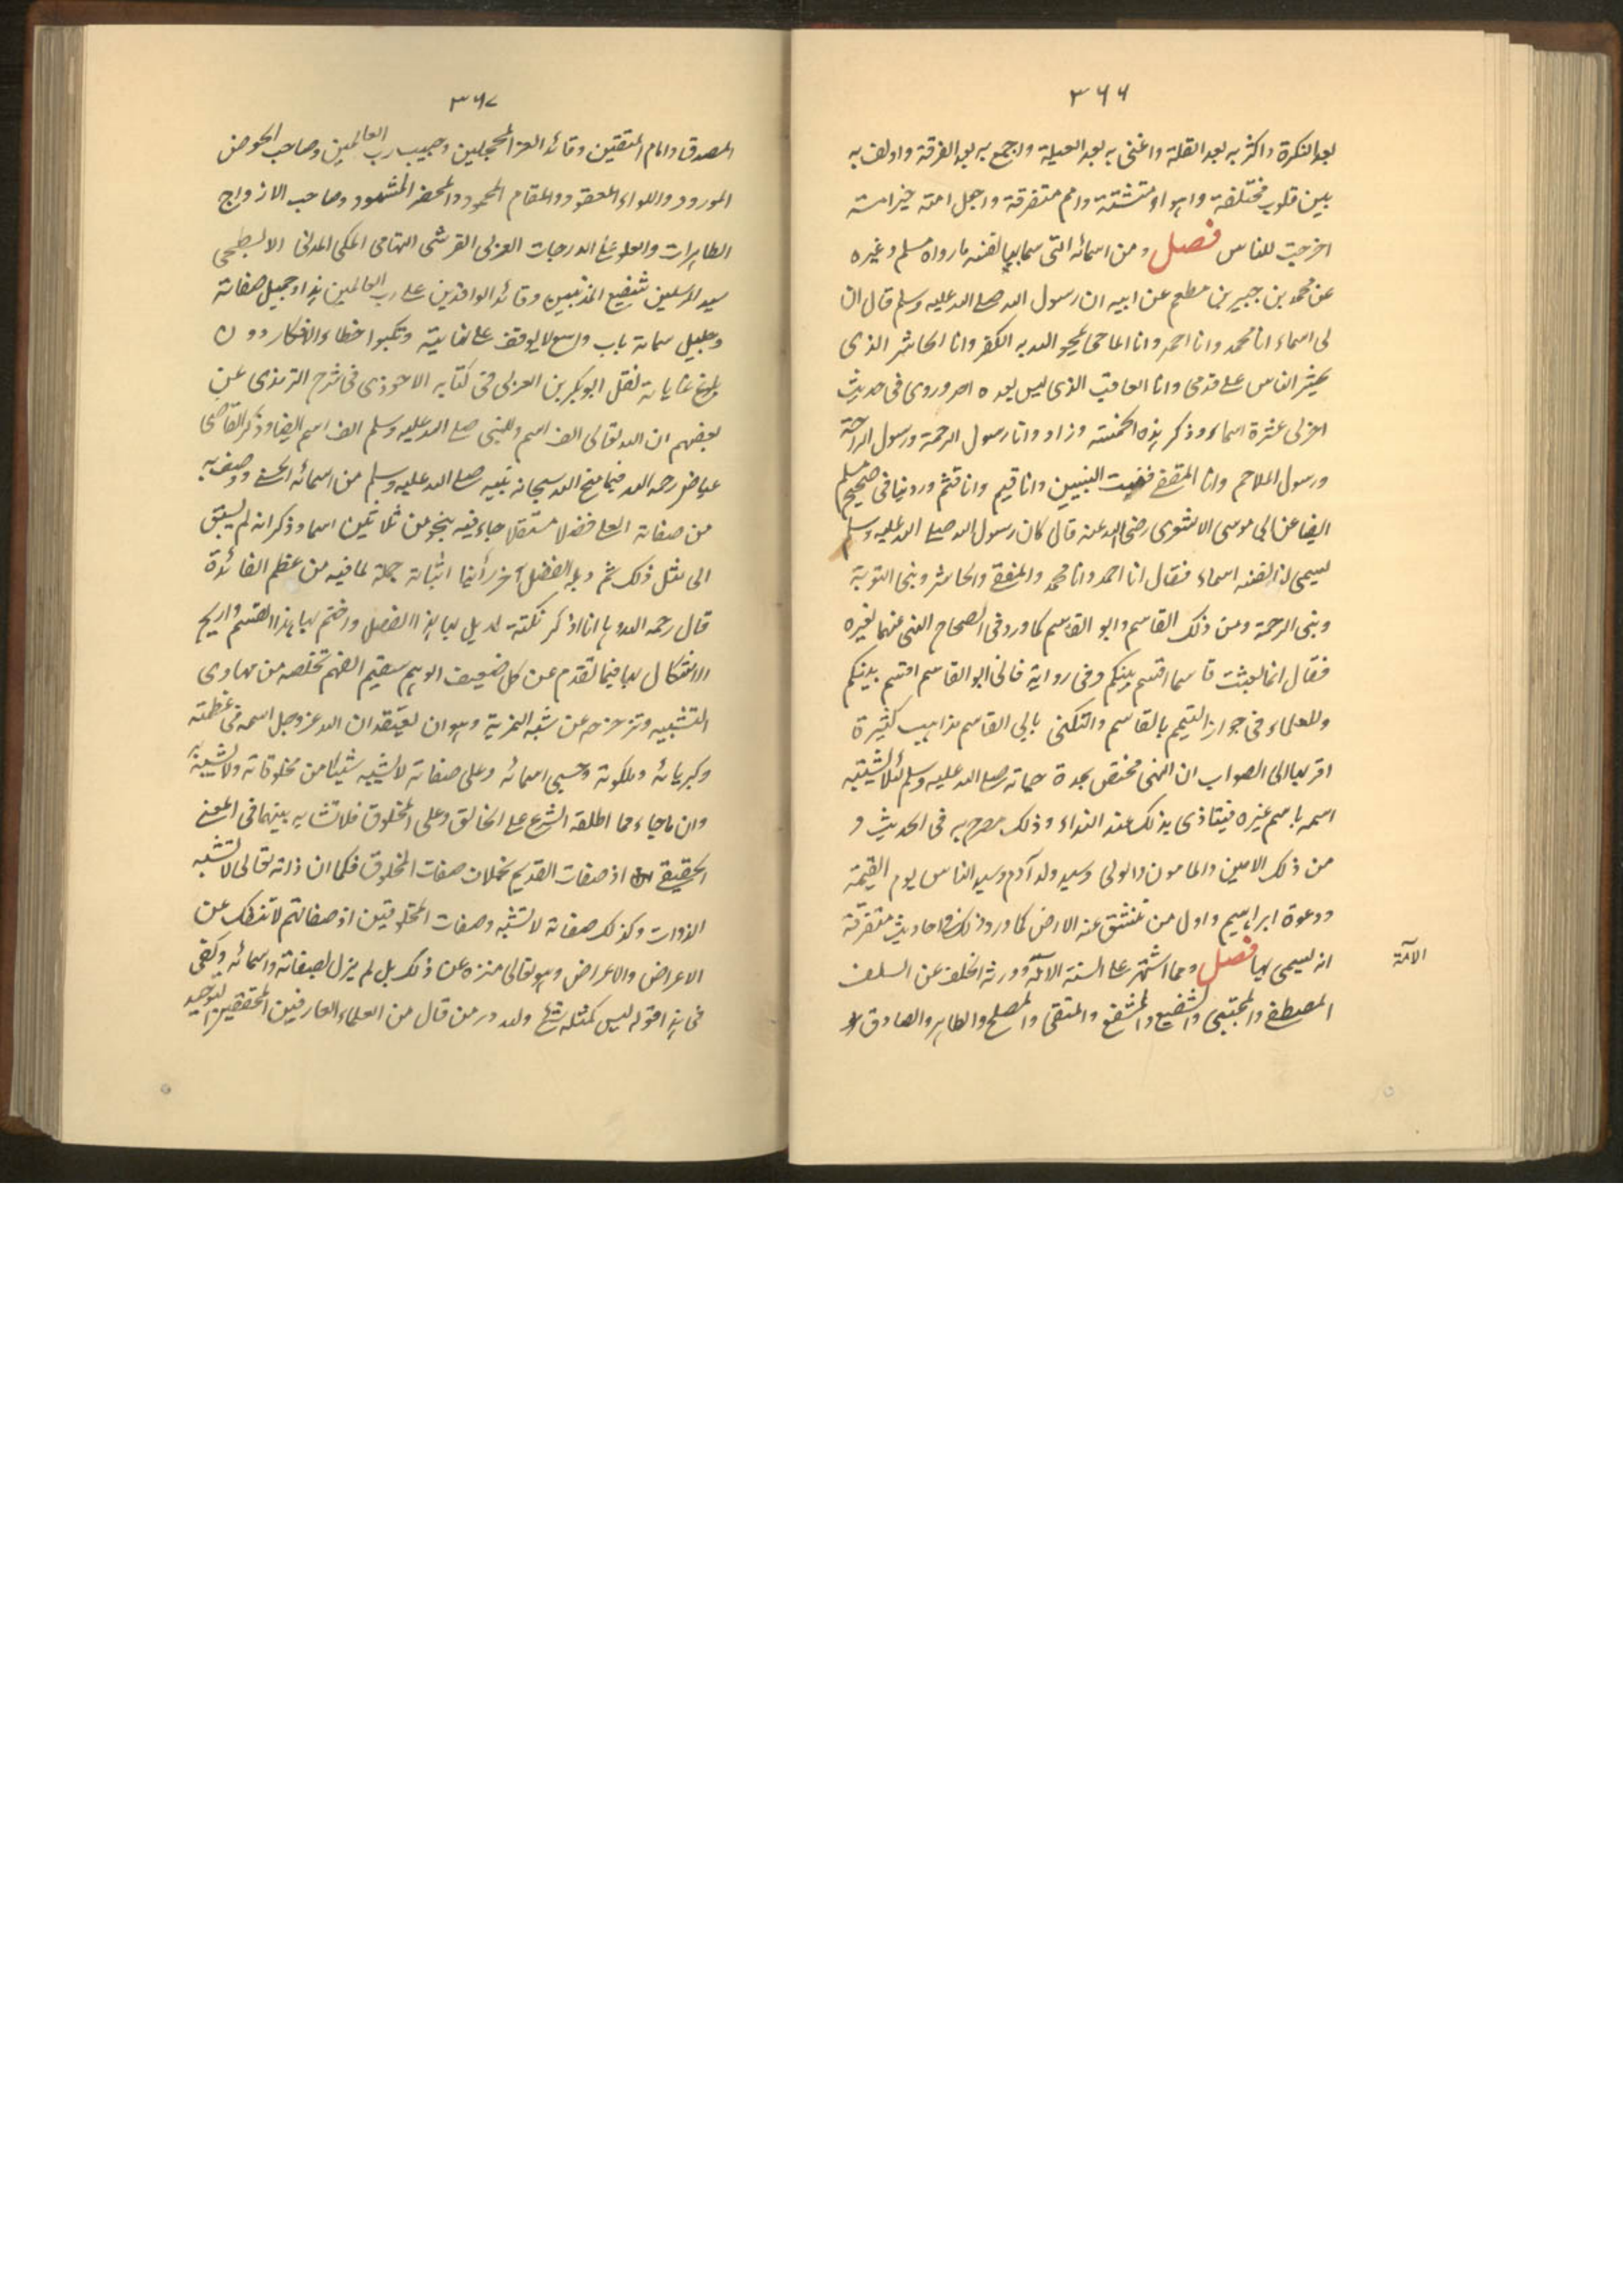 ٣٦٦
بعد النكرة واكثر به بعد القلة واغنى به بعد العيلة واجمع به بعد الفرقة واولف به
بين قلوب مختلفة واهواء متشتتة وامم متفرقة واجعل امته خير امة
اخرجت للناس فصل ومن اسمائه التى سما بها نفسه ما رواه مسلم وغيره
عن محمد بن جبير بن مطعم عن ابيه ان رسول الله صلى الله عليه وسلم قال ان
لى اسماء انا محمد وانا احمد وانا الماحى يمحو الله به الكفر وانا الحاشر الذى
يحشر الناس على قدمى وانا العاقب الذى ليس بعده احد وروى فى حديث
اخر لى عشرة اسماء وذكر هذه الخمسة وزاد وانا رسول الرحمة ورسول الراحة
ورسول الملاحم وانا المقفى قفيت النبيين وانا قيم وانا قثم وروينا فى صحيح مسلم
ايضا عن ابى موسى الاشعرى رضى الله عنه قال كان رسول الله صلى الله عليه وسلم
يسمى لنا نفسه اسماء فقال انا احمد وانا محمد والمقفى والحاشر ونبى التوبة
ونبى الرحمة ومن ذلك القاسم وابو القاسم كما ورد فى الصحاح النهى عنهما لغيره
فقال انما بعثت قاسما اقسم بينكم وفى رواية فانى ابو القاسم اقسم بينكم
وللعلماء فى جواز التيم بالقاسم والتكنى بابى القاسم مذاهب كثيرة
اقربها الى الصواب ان النهى مختص بمدة حياته صلى الله عليه وسلم لئلا يشتبه
اسمه باسم غيره فيتاذى بذلك عند النداء وذلك مصرح به فى الحديث و
من ذلك الامين والمامون والولى وسيد ولد آدم وسيد الناس يوم القيمة
ودعوة ابراهيم واول من تنشق عنه الارض كما ورد ذلك فى احاديث متفرقة
انه يسمى بها فصل ومما اشتهر على السنة الائمة وورثه الخلف عن السلف
الائمة
المصطفى والمجتبى والشفيع والمشفع والمتقى والمصلح والطاهر والصادق و
٣٦٧
المصدق وامام المتقين وقائد الغر المحجلين وحبيب رب العالمين وصاحب الحوض
المورود واللواء المعقود والمقام المحمود والمحضر المشهود وصاحب الازواج
الطاهرات والعلو على الدرجات العربى القرشى التهامى المكى المدنى الابطحى
سيد المرسلين شفيع المذنبين وقائد الوافدين على رب العالمين هذا وجميل صفاته
وجليل سماته باب واسع لا يوقف على نهايته وتكبوا خطاء الافكار دون
بلوغ غاياته نقل ابو بكر بن العربى فى كتابه الاحوذى فى شرح الترمذى عن
بعضهم ان الله تعالى الف اسم وللنبى صلى الله عليه وسلم الف اسم ايضا وذكر القاضى
عياض رحمه الله فيما منح الله سبحانه نبيه صلى الله عليه وسلم من اسمائه الحسنى ووصف به
من صفاته العلى فضلا مستقلا جاء فيه بنحو من ثلاثين اسما وذكر انه لم يسبق
الى مثل ذلك ثم ذيله الفضل آخر رأينا اثباته جملة لما فيه من عظم الفائدة
قال رحمه الله وها انا اذكر نكتة اذيل بها هذا الفصل واختم بها هذا القسم واريح
الاشكال بها فيما تقدم عن كل ضعيف الوهم سقيم الفهم تخلصه من مهاوى
التشبيه وتزحزحه عن شبه المزية وهو ان يعتقد ان الله عز وجل اسمه فى عظمته
وكبريائه وملكوته وحسنى اسمائه وعلى صفاته لا يشبه شيئا من مخلوقاته ولا يشبه به
وان ما جاء مما اطلقه الشرع على الخالق وعلى المخلوق فلا تشابه بينهما فى المعنى
الحقيقى اذ صفات القديم بخلاف صفات المخلوق فكما ان ذاته تعالى لا تشبه
الذوات وكذلك صفاته لا تشبه وصفات المخلوقين اذ صفاتهم لا تنفك عن
الاعراض والاعراض وهو تعالى منزه عن ذلك بل لم يزل بصفاته واسمائه وكفى
فى هذا قوله ليس كمثله شئ ولله در من قال من العلماء العارفين المحققين التوحيد